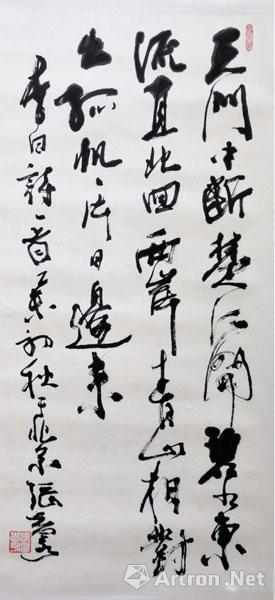 天門中斷楚江開碧水東
流直北回兩岸青山相對
出孤帆一片日邊來
李白詩一首 初秋于北京張
Artron.Net